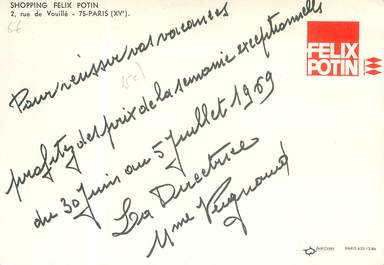 SHOPPING FELIX POTIN
2, rue de Vouillé - 75-PARIS (XVᵉ).
Pour réussir vos vacances
profitez des prix de la semaine exceptionnelle
du 30 Juin au 5 Juillet 1969
La Directrice
Mme
FELIX
POTIN